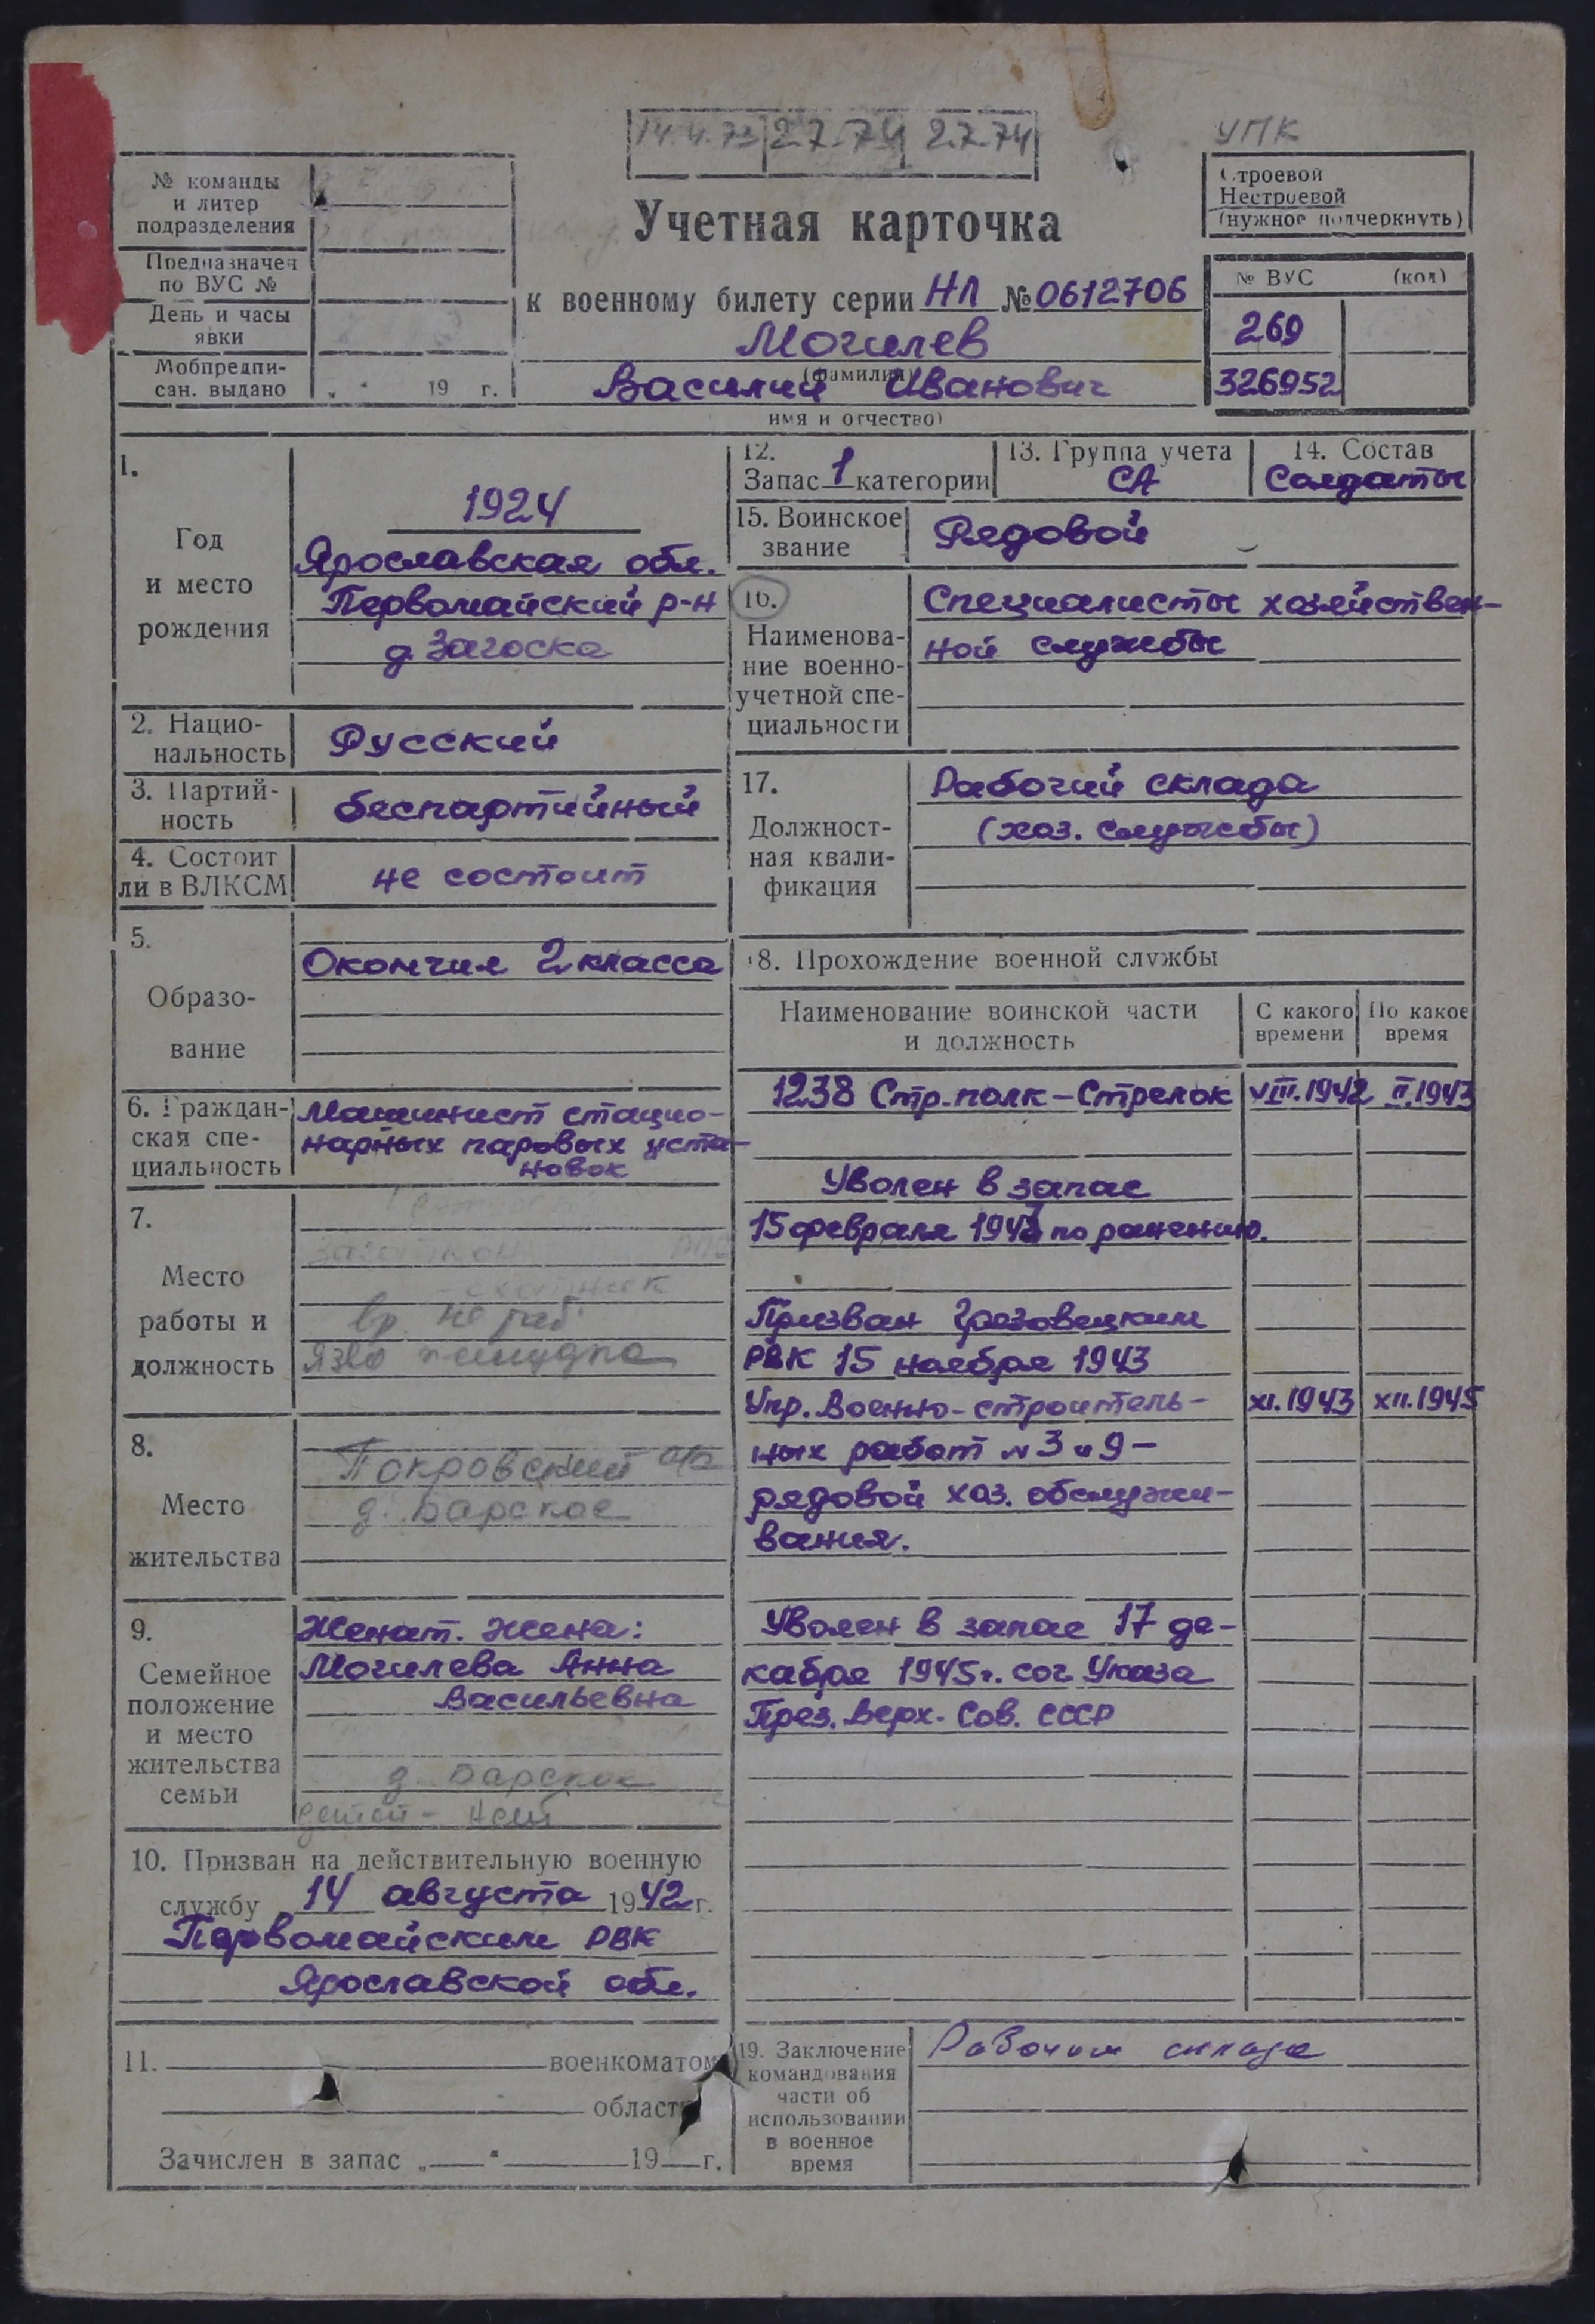 14.4.73 2.7.74 2.7.74
УПК
№ команды
и литер
подразделения
Предназначен
по ВУС №
День и часы
явки
Мобпредпи-
сан. выдано „ " 19 г.
Учетная карточка
к военному билету серии НЛ № 0612706
Могилев
(фамилия)
Василий Иванович
имя и отчество)
Строевой
Нестроевой
(нужное подчеркнуть)
№ ВУС (код)
269
326952
1.
Год
и место
рождения
1924
Ярославская обл.
Первомайский р-н
д. Загоска
2. Нацио-
нальность
Русский
3. Партий-
ность
беспартийный
4. Состоит
ли в ВЛКСМ
не состоит
5.
Образо-
вание
Окончил 2 класса
6. Граждан-
ская спе-
циальность
Машинист стацио-
нарных паровых уста-
новок
7.
Место
работы и
должность
вр. не раб.
язва желудка
8.
Место
жительства
Покровский
д. Барское
9.
Семейное
положение
и место
жительства
семьи
Женат. Жена:
Могилева Анна
Васильевна
д. Барское
детей - нет
10. Призван на действительную военную
службу 14 августа 1942 г.
Первомайским РВК
Ярославской обл.
11. военкоматом
област
Зачислен в запас „ " 19 г.
12.
Запас 1 категории
13. Группа учета
СА
14. Состав
Солдаты
15. Воинское
звание
Рядовой
16.
Наименова-
ние военно-
учетной спе-
циальности
Специалисты хозяйствен-
ной службы
17.
Должност-
ная квали-
фикация
Рабочий склада
(хоз. службы)
18. Прохождение военной службы
Наименование воинской части
и должность
С какого
времени
По какое
время
1238 Стр. полк - Стрелок VIII.1942 II.1943
Уволен в запас
15 февраля 1943 по ранению.
Призван Грязовецким
РВК 15 ноября 1943
Упр. Военно-строитель- XI.1943 XII.1945
ных работ № 3 и 9 -
рядовой хоз. обслужи-
вания.
Уволен в запас 17 де-
кабря 1945 г. сог Указа
През. Верх. Сов. СССР
19. Заключение
командования
части об
использовании
в военное
время
Рабочим склада